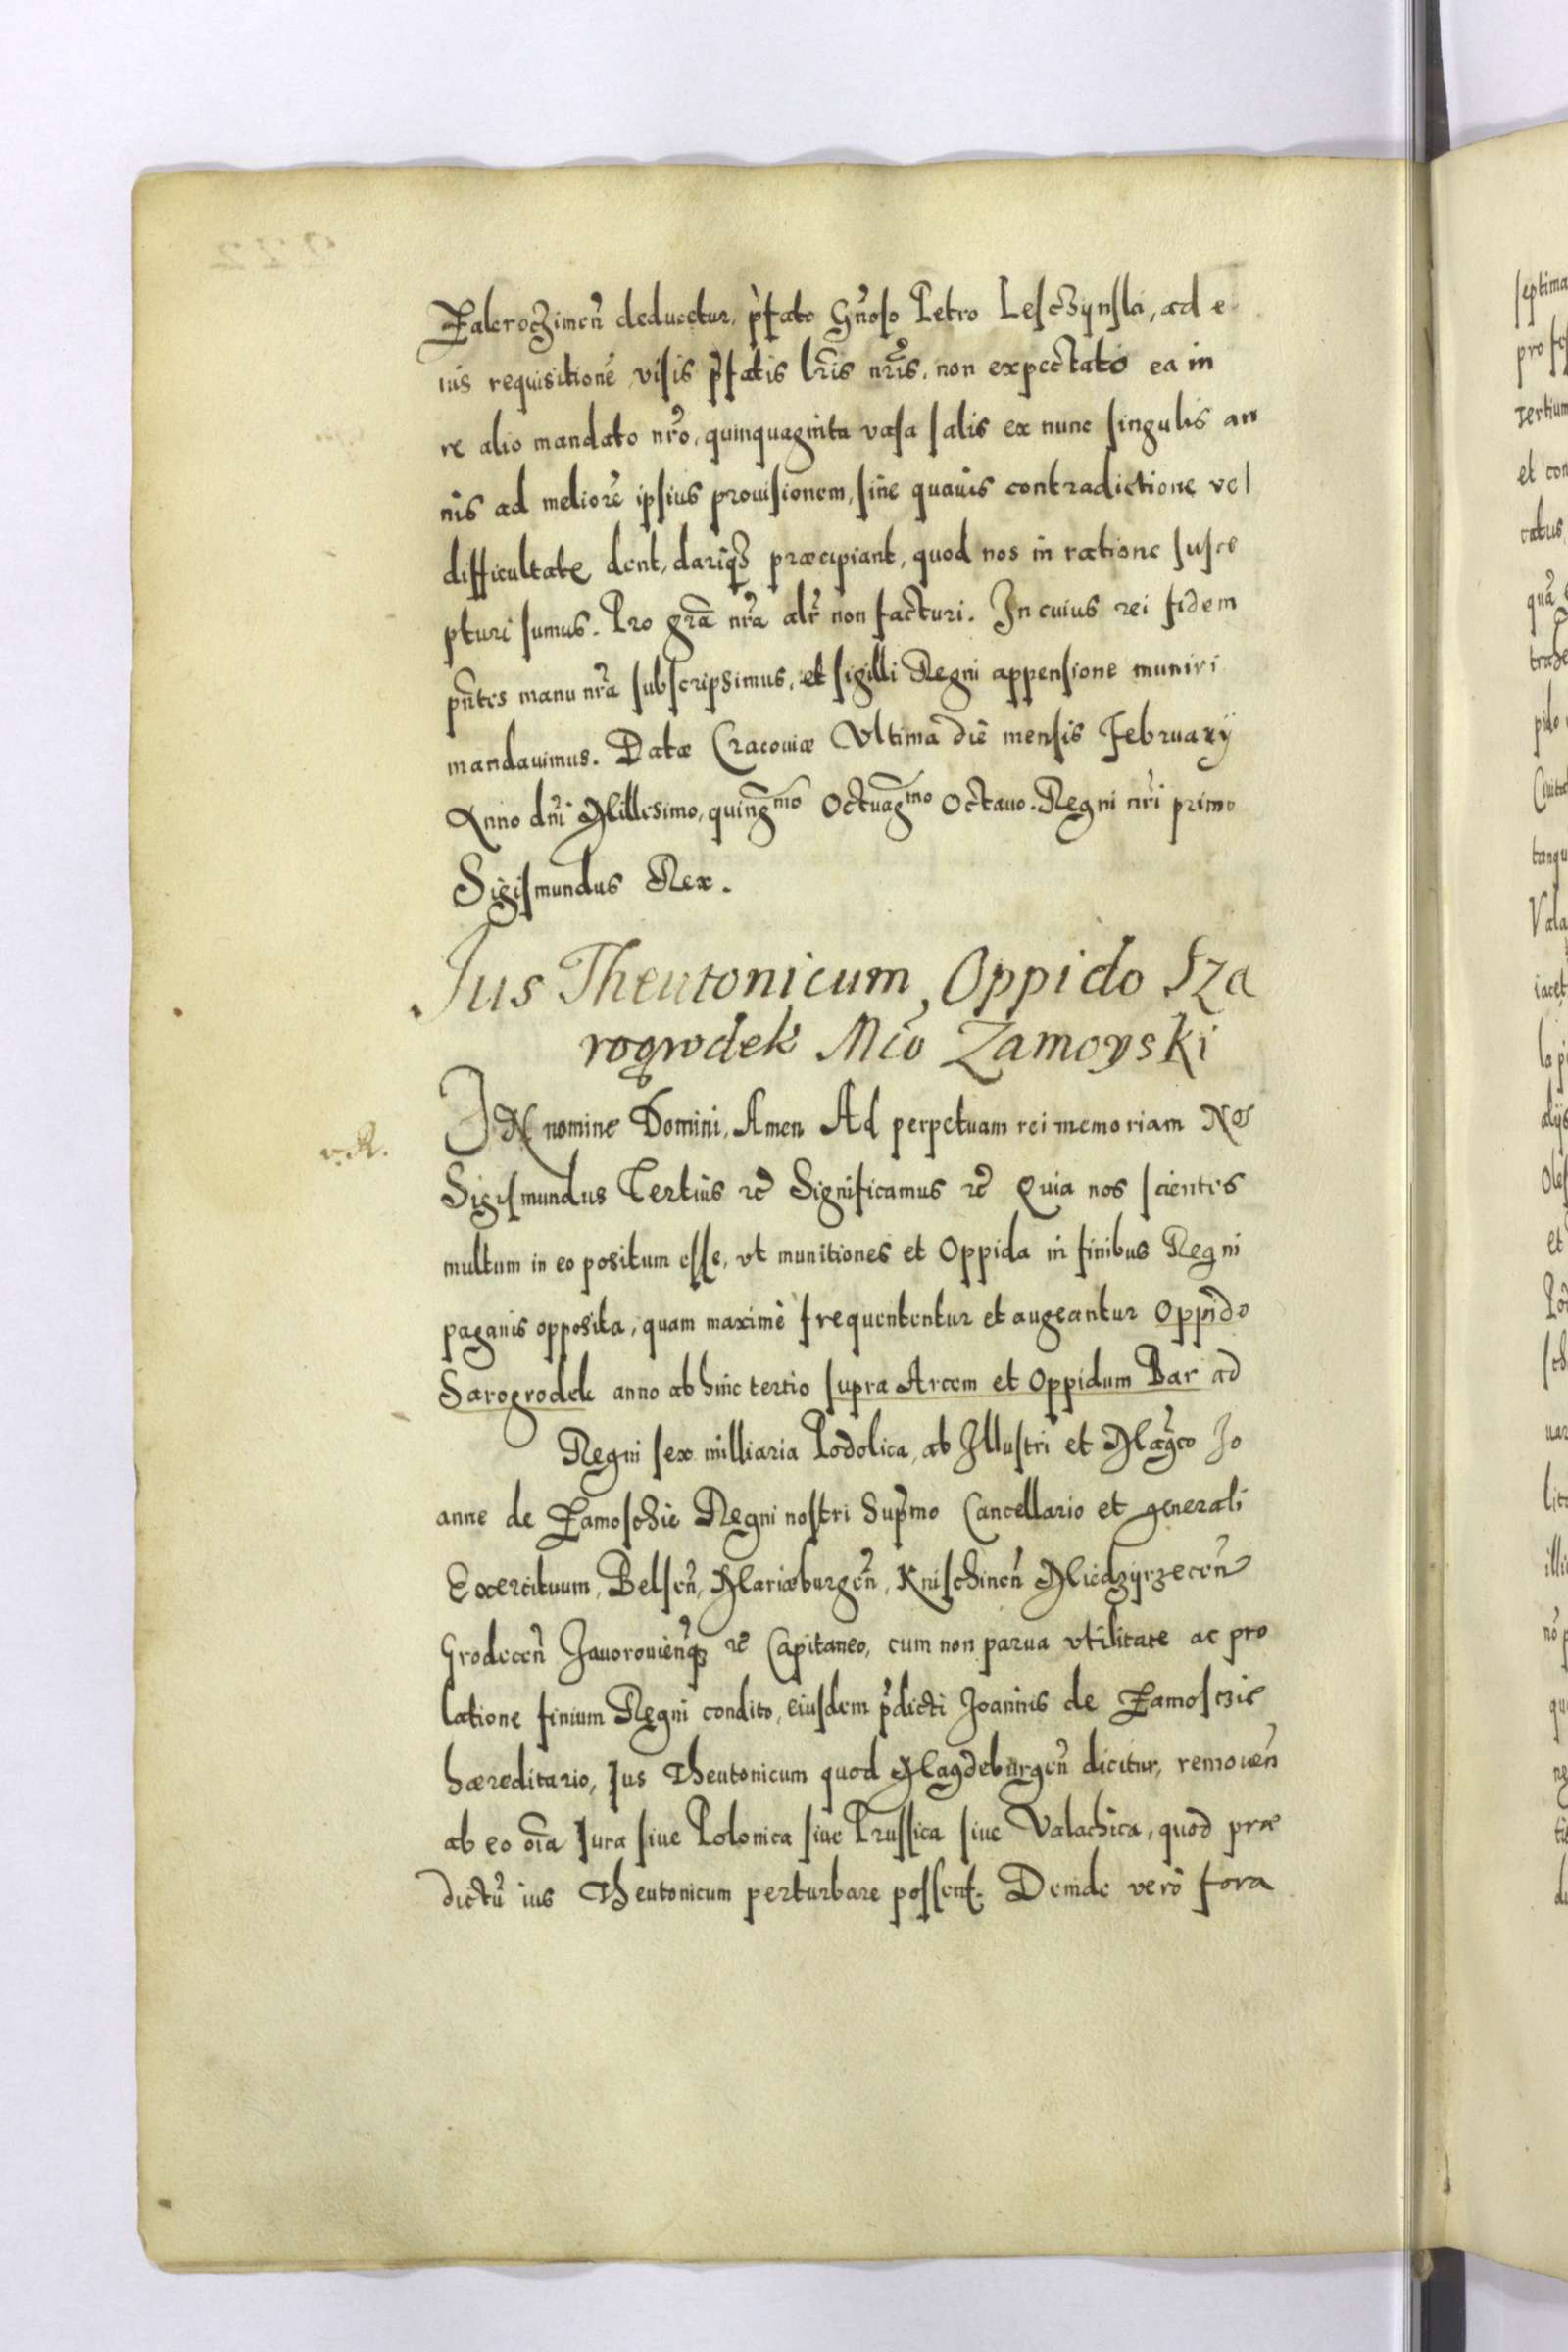 Zakroczimeñ deducetur, p̃fato Gñoso Petro Lesczynski, ad e
ius requisitionẽ visis p̃fatis lr̃is nr̃is, non expectato ea in
re alio mandato nr̃o, quinquaginta vasa salis ex nunc singulis an
nis ad meliorẽ ipsius prouisionem, sine quauis contradictione vel
difficultate dent, dariq̃ præcipiant, quod nos in ratione susce
pturi sumus. Pro gr̃a nr̃a alr̃ non facturi. In cuius rei fidem
pñtes manu nr̃a subscripsimus, et sigilli Regni appensione muniri
mandauimus. Datæ Cracouiæ Vltima die mensis February
Anno dñi Millesimo, quingmo Octuagmo Octauo. Regni nr̃i primo
Sigismundus Rex.
Jus Theutonicum Oppido Sza
rogrodek Mco Zamoyski
v. R.
IN nomine Domini, Amen Ad perpetuam rei memoriam Nos
Sigismundus Tertius etc Significamus etc Quia nos scientes
multum in eo positum esse, vt munitiones et Oppida in finibus Regni
paganis opposita, quam maximè frequententur et augeantur Oppido
Sarogrodek anno ab hinc tertio supra Arcem et Oppidum Bar ad
Regni sex milliaria Podolica, ab Illustri et Magco Jo
anne de Zamoschie Regni nostri Sup̃mo Cancellario et generali
Exercituum, Belseñ, Mariæburgeñ, Knischineñ Miedzyrzeceñ
Grodeceñ Javorouieñq̃ etc Capitaneo, cum non parua vtilitate ac pro
latione finium Regni condito, eiusdem p̃dicti Joannis de Zamosczie
hæreditario, Jus Theutonicum quod Magdeburgeñ dicitur, remoueñ
ab eo oĩa Iura siue Polonica siue Prussica siue Valachica, quod præ
dictũ ius Theutonicum perturbare possent. Deinde verò fora